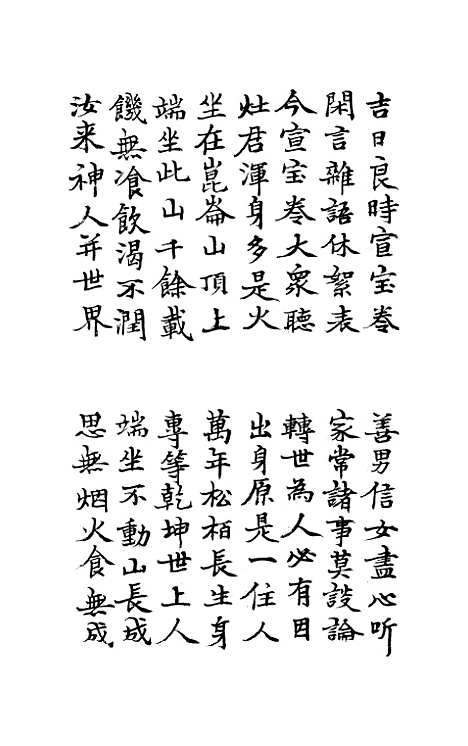 吉日良時宣宝卷
善男信女盡心听
閑言雜語休絮表
家常諸事莫談論
今宣宝卷大衆聴
轉世為人必有因
灶君渾身多是火
出身原是一住人
坐在崑崙山頂上
萬年松栢長生身
端坐此山千餘載
專等乾坤世上人
饑無飡飲渴不潤
端坐不動山長成
汝来神人并世界
思無烟火食無成